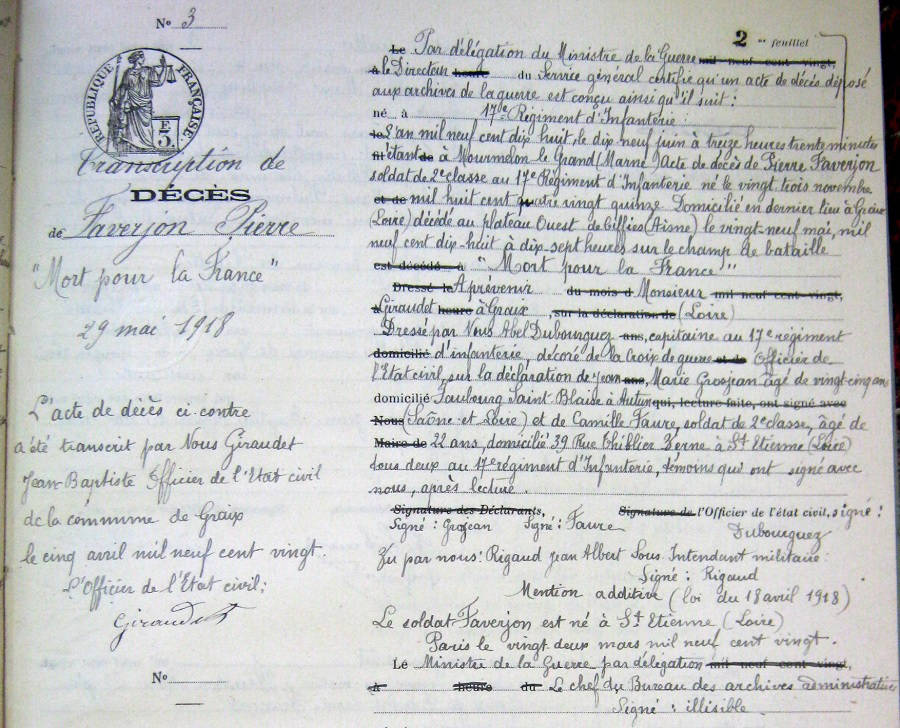 No 3
RÉPUBLIQUE FRANÇAISE
F
5
Transcription de
DÉCÈS
de Faverjon Pierre
"Mort pour la France"
29 mai 1918
L'acte de décès ci-contre
a été transcrit par Nous Giraudet
Jean-Baptiste Officier de l'Etat civil
de la commune de Graix
le cinq avril mil neuf cent vingt.
L'Officier de l'Etat civil:
Giraudet
No
2 me feuillet
Le Par délégation du Ministre de la Guerre mil neuf cent vingt,
à le Directeur heure du Service général certifie qu'un acte de décès déposé
aux archives de la guerre est conçu ainsi qu'il suit :
né à 17e Régiment d'Infanterie :
le L'an mil neuf cent dix huit le dix neuf juin à treize heures trente minutes
étant de à Mourmelon le Grand (Marne) Acte de décès de Pierre Faverjon
soldat de 2e classe au 17e Régiment d'Infanterie né le vingt trois novembre
et de mil huit cent quatre vingt quinze Domicilié en dernier lieu à Graix
(Loire) décédé au plateau Ouest de (Aisne) le vingt-neuf mai, mil
neuf cent dix-huit à dix-sept heures sur le champ de bataille
est décédé à "Mort pour la France"
Dressé le A prévenir du mois d Monsieur mil neuf cent vingt,
à Giraudet heure à Graix, sur la déclaration de (Loire)
Dressé par Nous Abel Dubourguez ans, capitaine au 17e régiment
domicilié d'infanterie, décoré de la Croix de guerre et de Officier de
l'Etat civil, sur la déclaration de Jean ans, Marie Grosjean âgé de vingt-cinq ans
domicilié Faubourg Saint-Blaise à Autun qui, lecture faite, ont signé avec
Nous (Saône-et-Loire) et de Camille Faure, soldat de 2e classe, âgé de
Maire de 22 ans, domicilié 39 Rue Thiblier Verne à St Etienne (Loire)
tous deux au 17e régiment d'Infanterie, témoins qui ont signé avec
nous, après lecture.
Signature des Déclarants, Signature de l'Officier de l'état civil, signé :
Signé : Grosjean Signé : Faure Dubourguez
Vu par nous : Rigaud Jean Albert Sous Intendant militaire :
Signé : Rigaud
Mention additive (loi du 18 avril 1918)
Le soldat Faverjon est né à St Etienne (Loire)
Paris le vingt deux mars mil neuf cent vingt.
Le Ministre de la Guerre par délégation mil neuf cent vingt,
à heure du Le chef du Bureau des archives administratives
Signé : illisible.